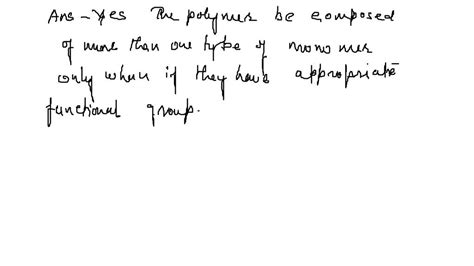 Ans - Yes The polymer be composed
of more than one type of monomer
only when if they have appropriate
functional group.